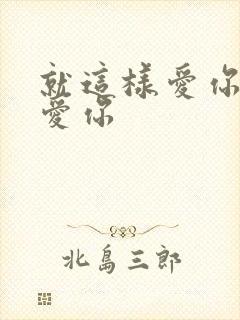 就這樣愛你
愛你
北島三郎